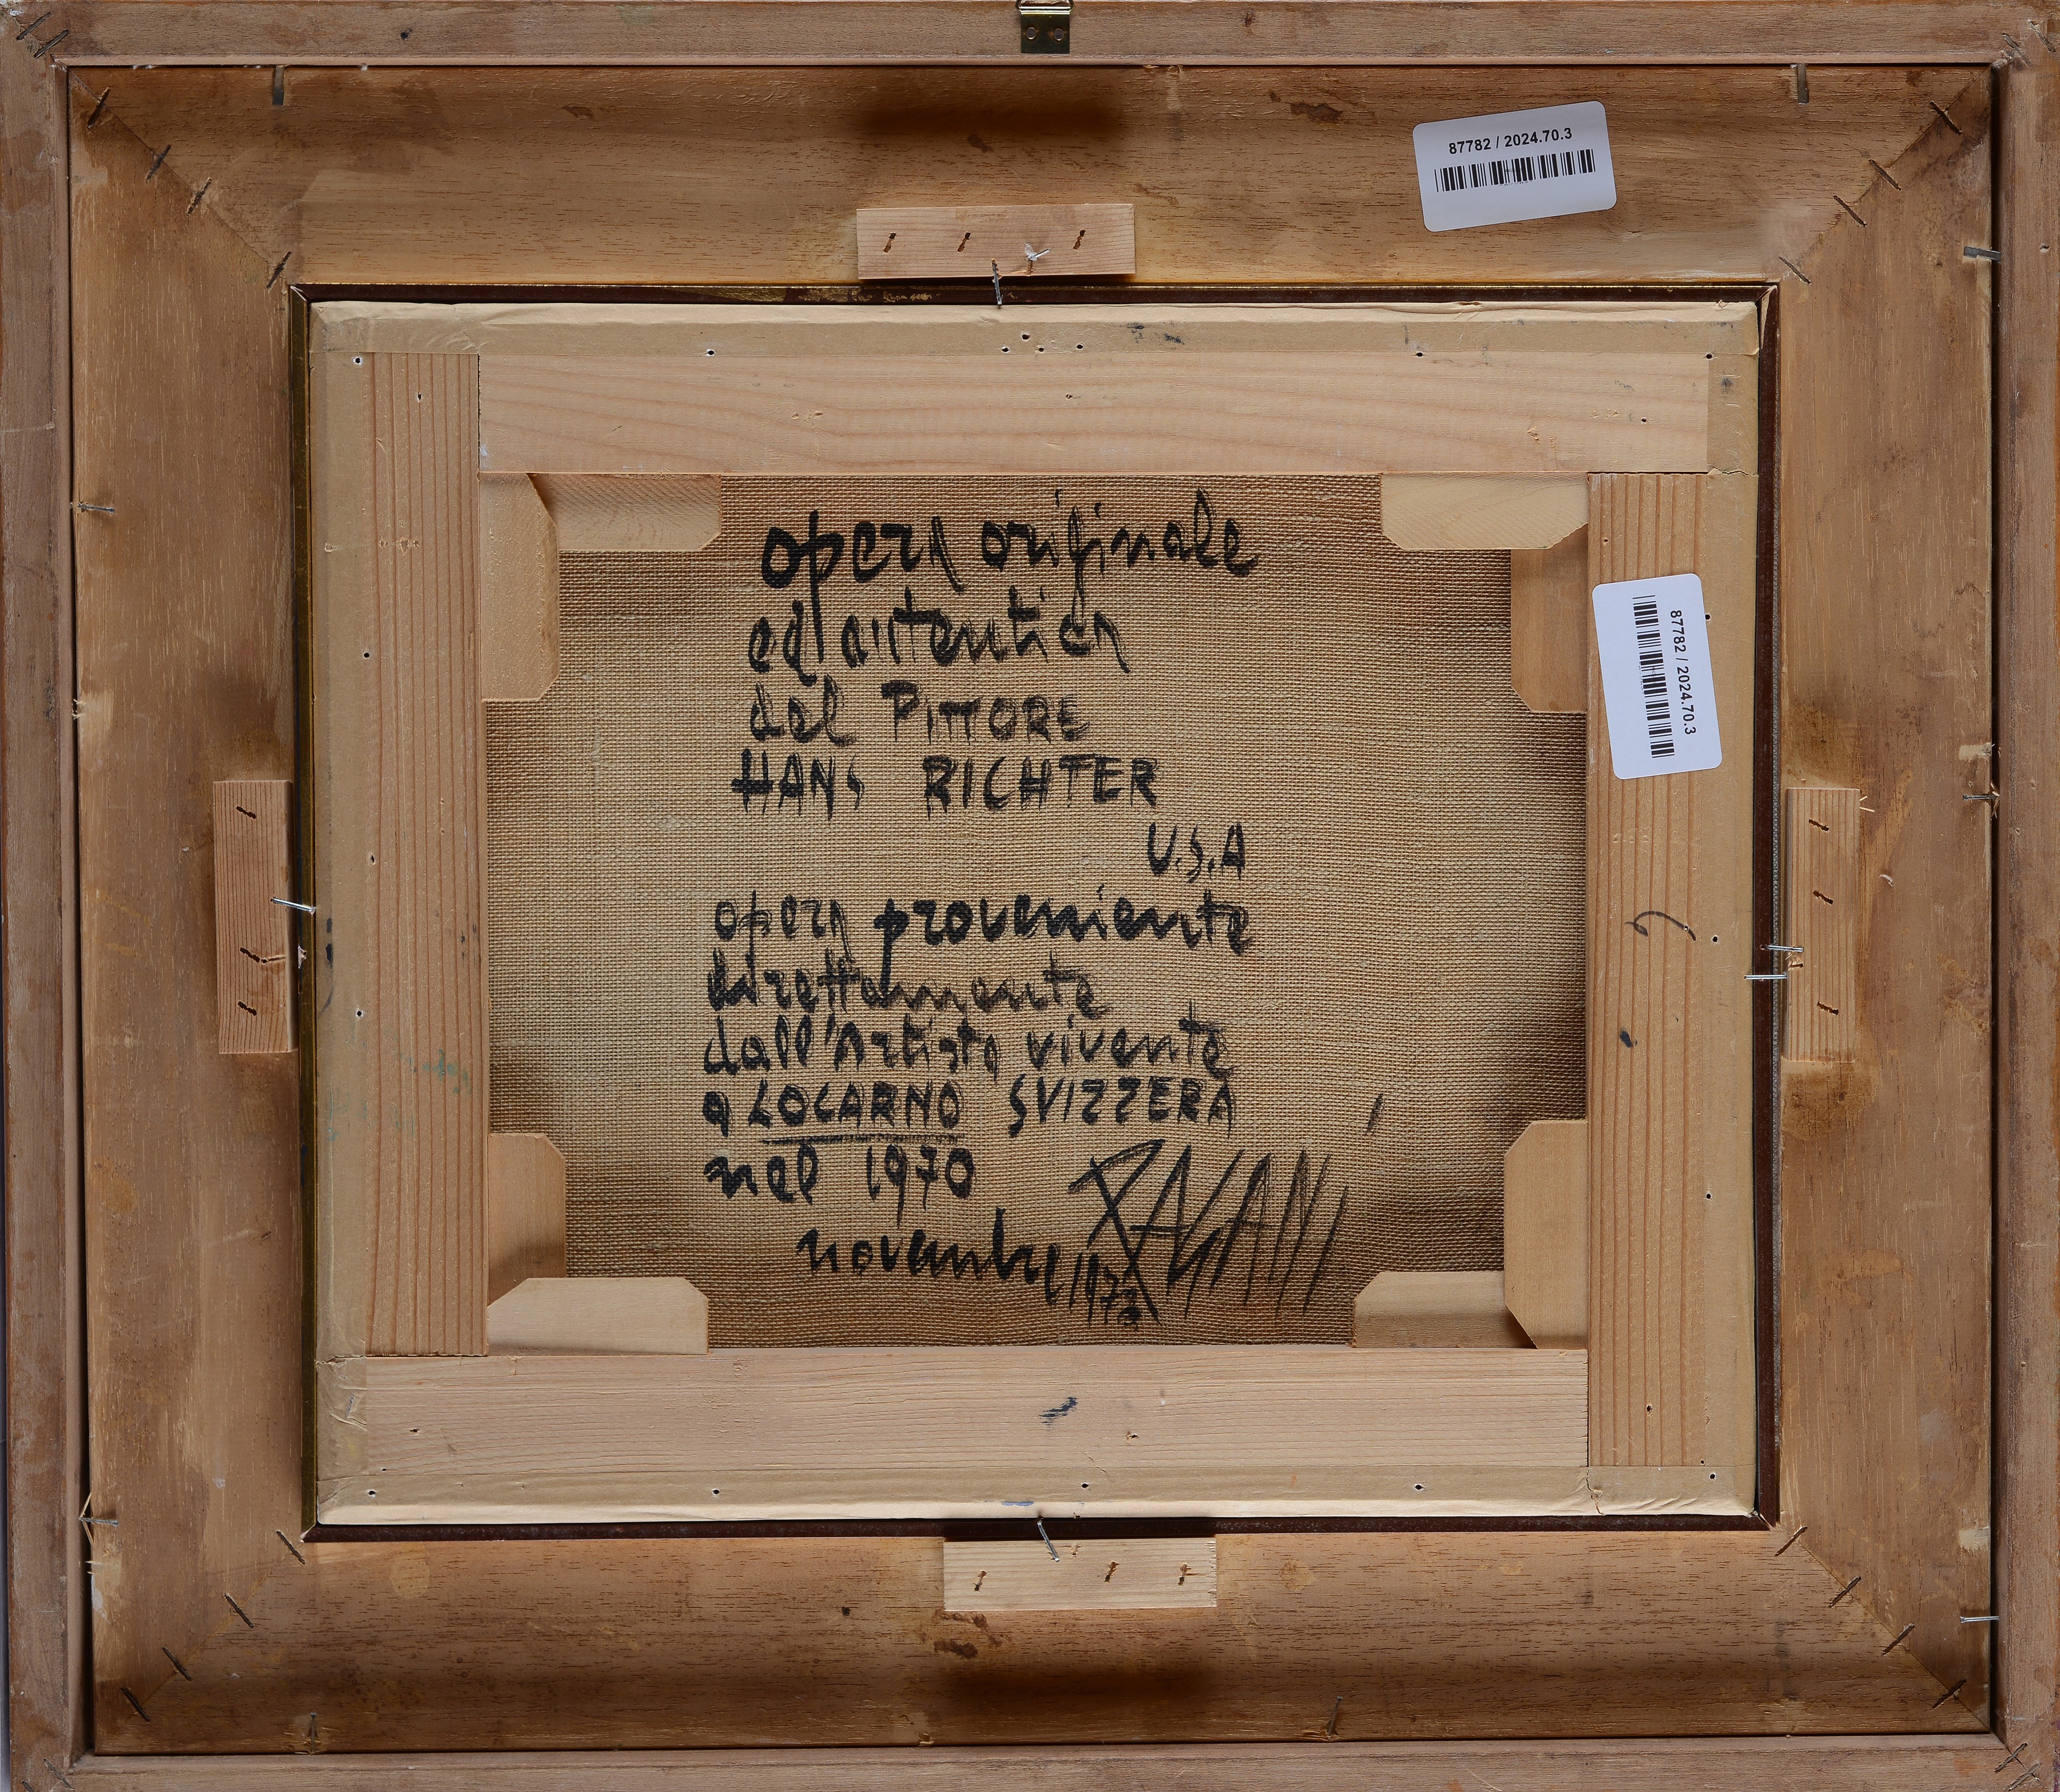 87782 / 2024.70.3
opera originale
ed autentica
del PITTORE
HANS RICHTER
U.S.A
87782 / 2024.70.3
opera proveniente
direttamente
dall'Artista vivente
a LOCARNO SVIZZERA
nel 1970
PAGANI
novembre 1973